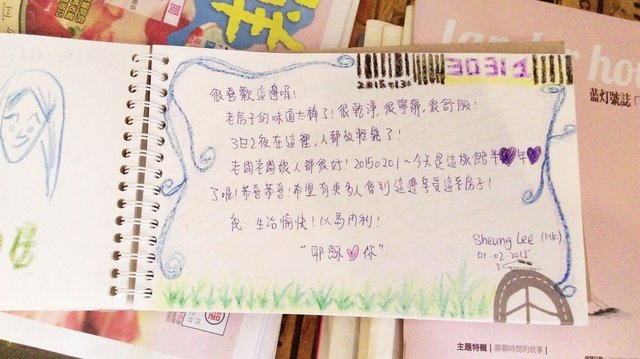 20150131
30311
很喜歡這邊喔!
老房子的味道太棒了!很乾淨,很寧靜,很舒服!
3日2夜在這裡,人都放輕鬆了!
老闆老闆娘人都很好!20150201~今天是這旅館半年
了喔!恭喜恭喜!希望有更多人會到這邊享受這老房子!
祝 生活愉快!以馬內利!
"耶穌♥你".
Sheung Lee (HK)
01.02.2015.
藍灯號誌
主題特輯 | 聊聊時間的故事